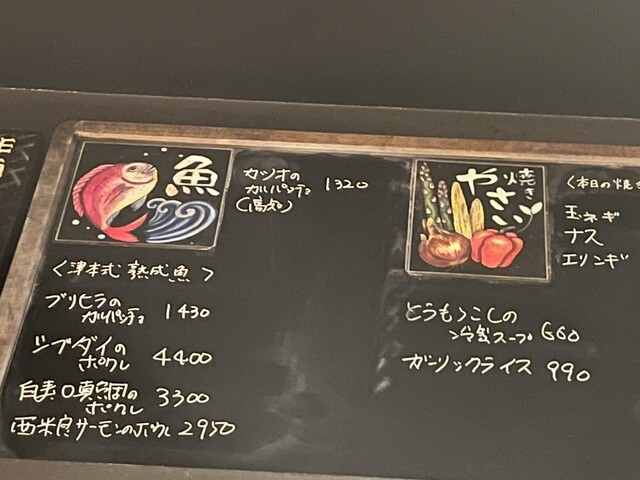 魚
カツオの
カルパッチョ 1320
(高知)
〈津本式 熟成魚〉
ブリヒラの
カルパッチョ 1430
シブダイの
ポワレ 4400
真鯛の
ポワレ 3300
西米良サーモンのポワレ 2950
焼き
やさい
〈本日の焼き
玉ネギ
ナス
エリンギ
とうもろこしの
冷製スープ 660
ガーリックライス 990